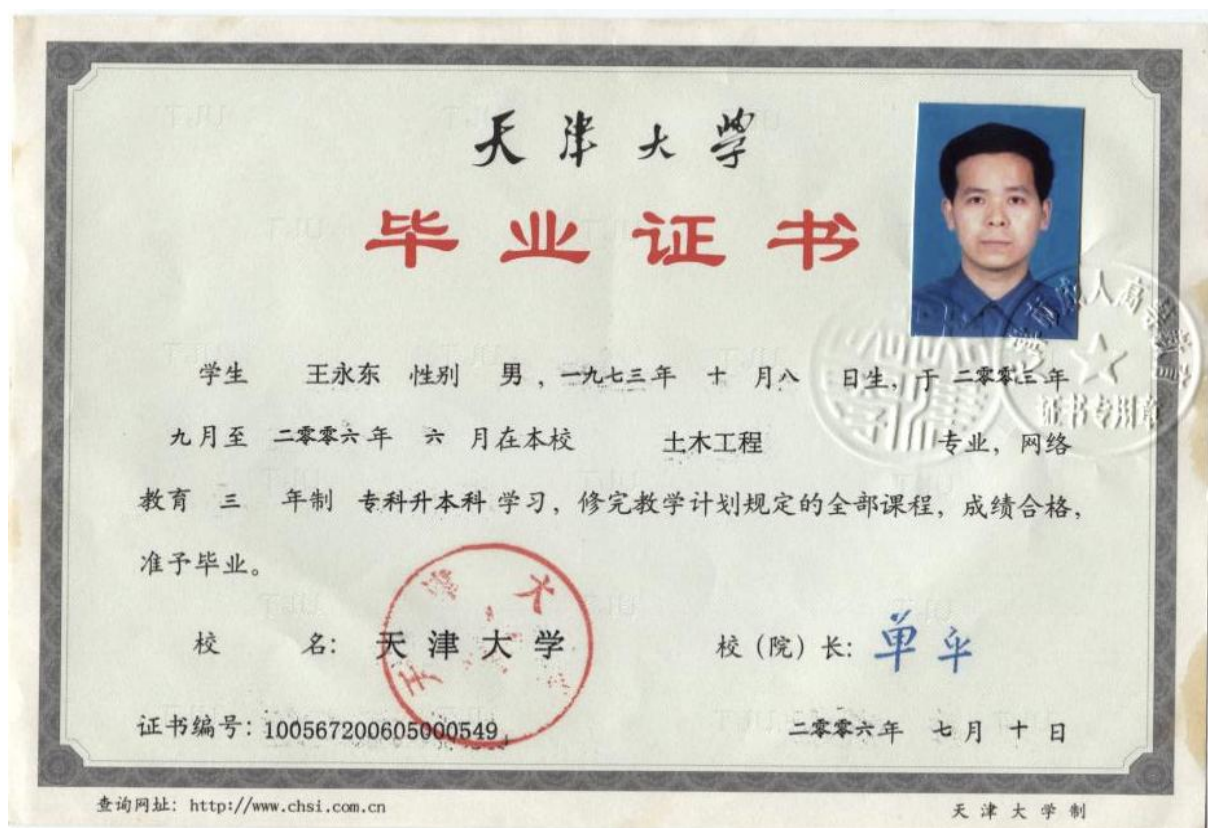 天津大学
毕业证书
学生 王永东 性别 男，一九七三年 十 月八 日生，于 二零零三年
九月至 二零零六年 六 月在本校 土木工程 专业，网络
教育 三 年制 专科升本科 学习，修完教学计划规定的全部课程，成绩合格，
准予毕业。
校 名：天津大学 校（院）长：单平
证书编号：100567200605000549 二零零六年 七月十日
查询网址：http://www.chsi.com.cn 天津大学制
证书专用章